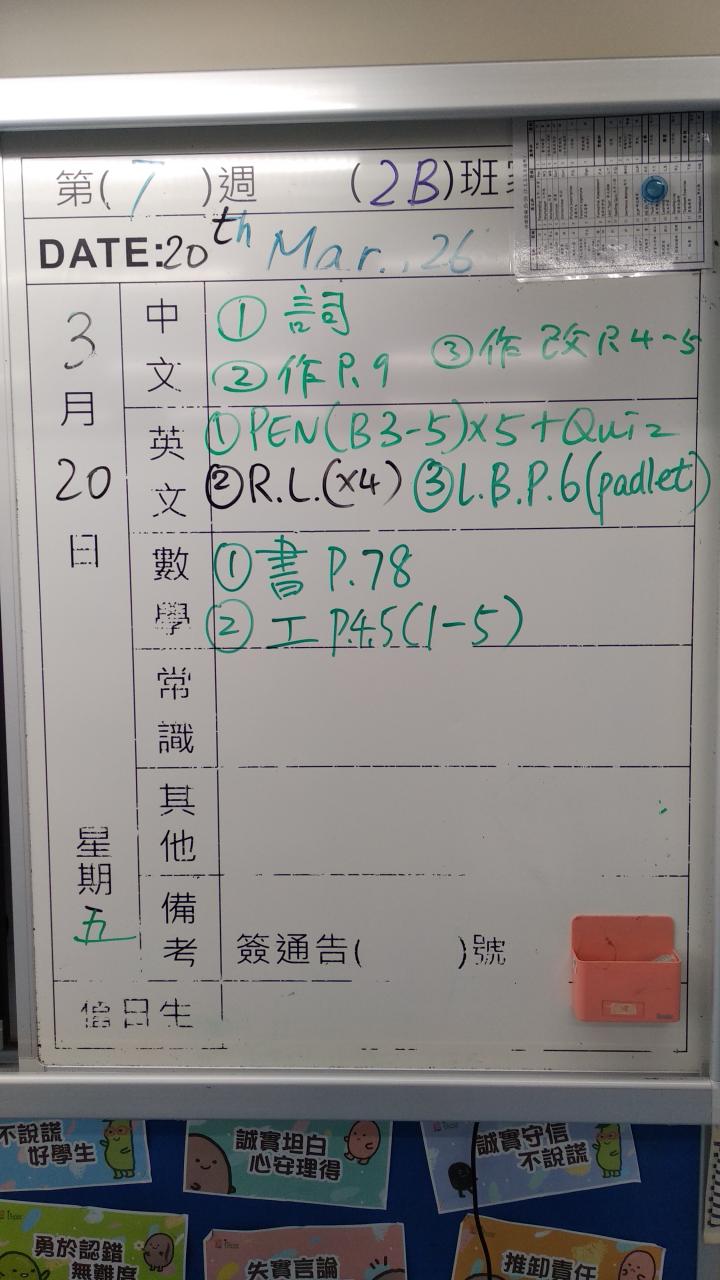 第( 7 )週 (2B)班
DATE:20th Mar., 26
3月20日
星期五
中文
① 詞
② 作P.9 ③作 改P.4-5
英文
①PEN(B3-5)x5+Quiz
②R.L.(x4) ③L.B.P.6(padlet)
數學
①書 P.78
② 工 P.45(1-5)
常識
其他
備考
簽通告( )號
值日生
不說謊
好學生
誠實坦白
心安理得
誠實守信
不說謊
勇於認錯
無難度
失實言論
推卸責任